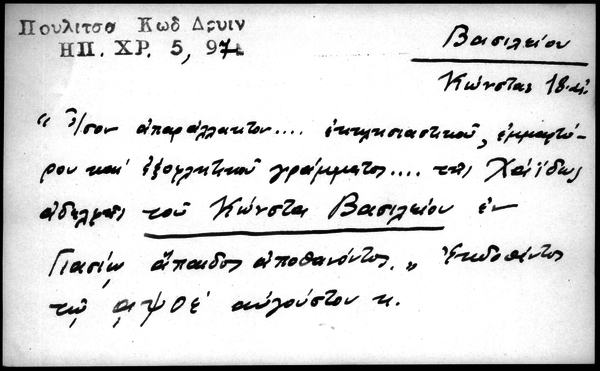 Πουλιτσα Κωδ Δρυιν
ΗΠ. ΧΡ. 5, 97
Βασιλείου
Κώνστας 18 αἰ.
"Ἴσον ἀπαράλλακτον.... ἐκτιμησιαστικοῦ, ἐμμαρτύ-
ρου καὶ ἐξοφλητικοῦ γράμματος.... τῆς Χάϊδως
ἀδελφῆς τοῦ Κώνστα Βασιλείου ἐν
Γιασίῳ ἄπαιδος ἀποθανόντος." Ἐκδοθέντος
τῷ ͵αψοε΄ αὐγούστου κ.